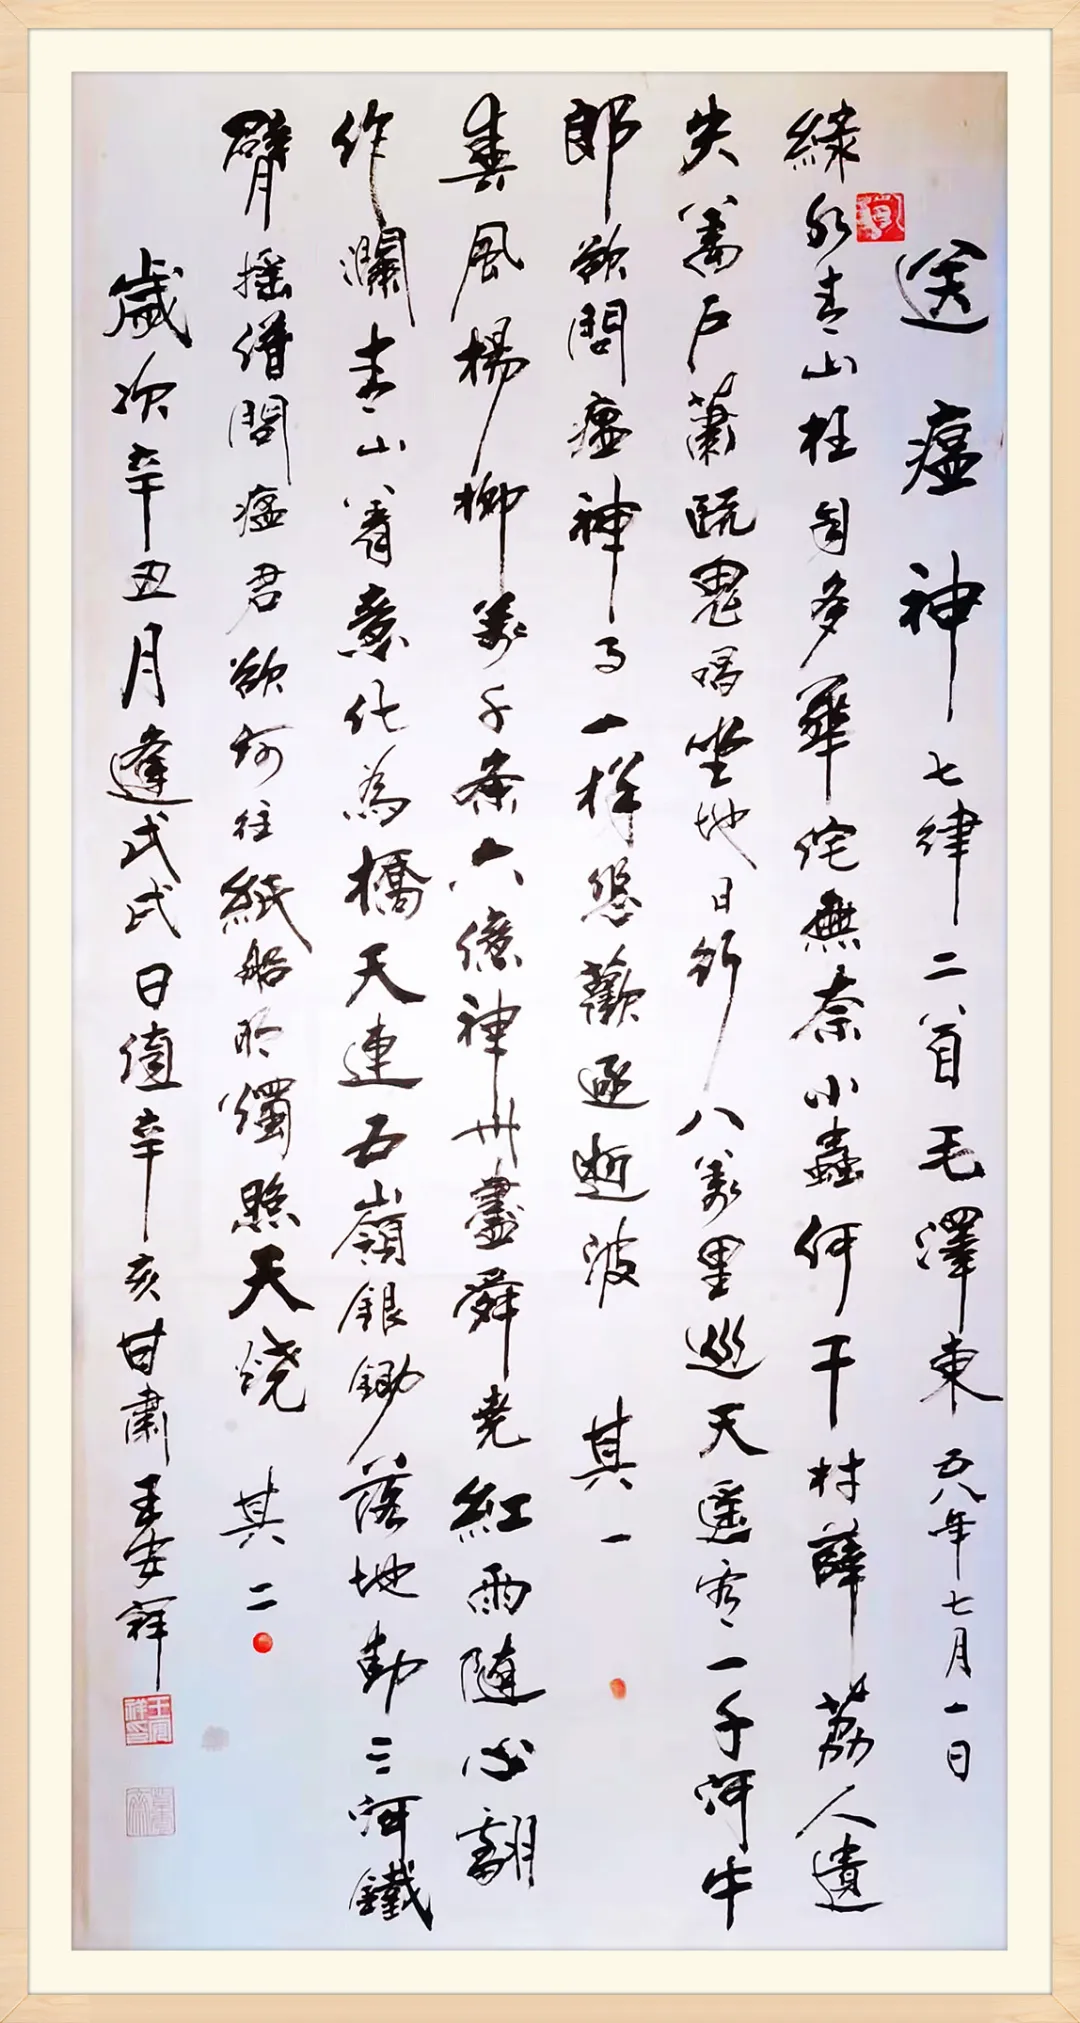 送瘟神 七律二首 毛澤東 五八年七月一日
綠水青山枉自多華佗無奈小蟲何千村薜荔人遺
矢萬户蕭疏鬼唱坐地日行八萬里巡天遥看一千河牛
郎欲問瘟神事一样悲歡逐逝波 其一
春風楊柳萬千条六億神州盡舜尧紅雨隨心翻
作瀾青山着意化為橋天連五嶺銀鋤落地動三河鐵
臂摇借問瘟君欲何往紙船明燭照天燒 其二
歲次辛丑月逢戊戌日值辛亥甘肅王安祥